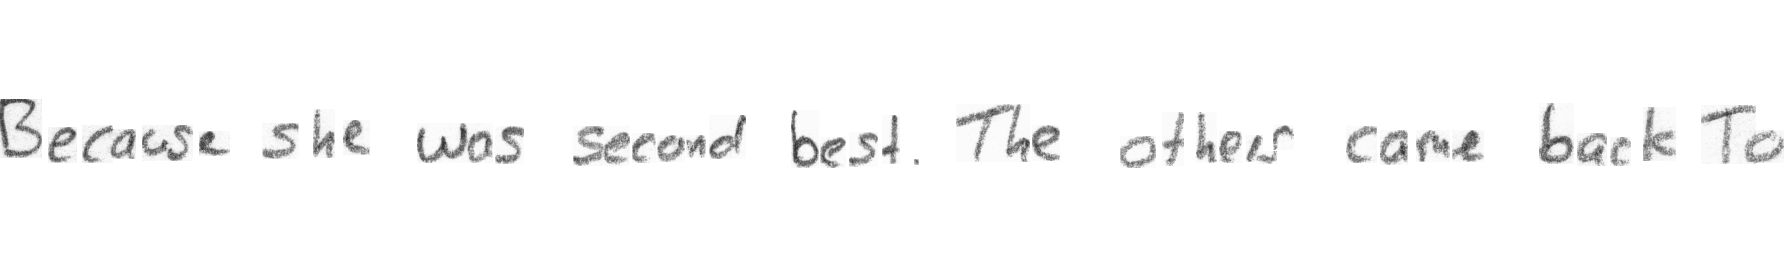 Because she was second best. The others came back To